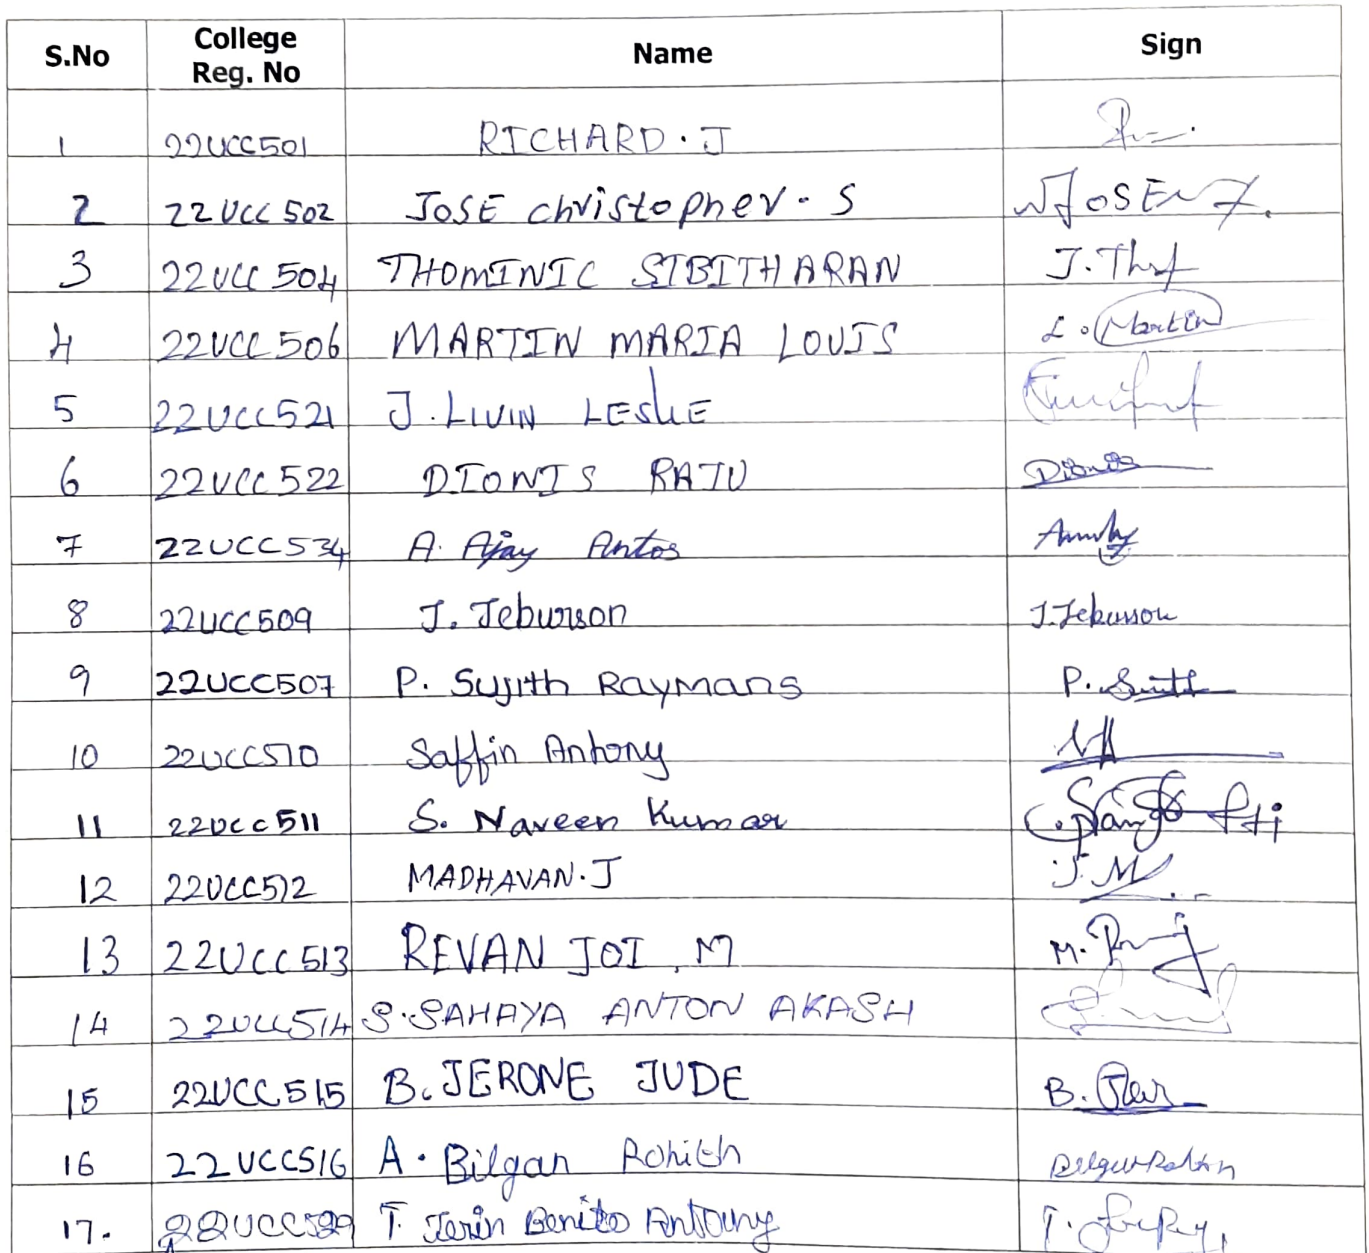 S.No College Reg. No Name Sign
1 22UCC501 RICHARD. J
2 22UCC502 JOSE christopher. S JOSE
3 22UCC504 THOMINIC SIBITHARAN J. Th
4 22UCC506 MARTIN MARIA LOUIS L. Martin
5 22UCC521 J. LIVIN LESLIE
6 22UCC522 DIONIS RAJU Dionis
7 22UCC534 A. Ajay Antos
8 22UCC509 J. Jeburson J. Jeburson
9 22UCC507 P. Sujith Raymans P.
10 22UCC510 Saffin Antony
11 22UCC511 S. Naveen Kumar
12 22UCC512 MADHAVAN. J J. M
13 22UCC513 REVAN JOI. M M.
14 22UCC514 S. SAHAYA ANTON AKASH
15 22UCC515 B. JERONE JUDE B.
16 22UCC516 A. Bilgan Rohith
17. 22UCC529 T. Jerin Benito Antouny T.